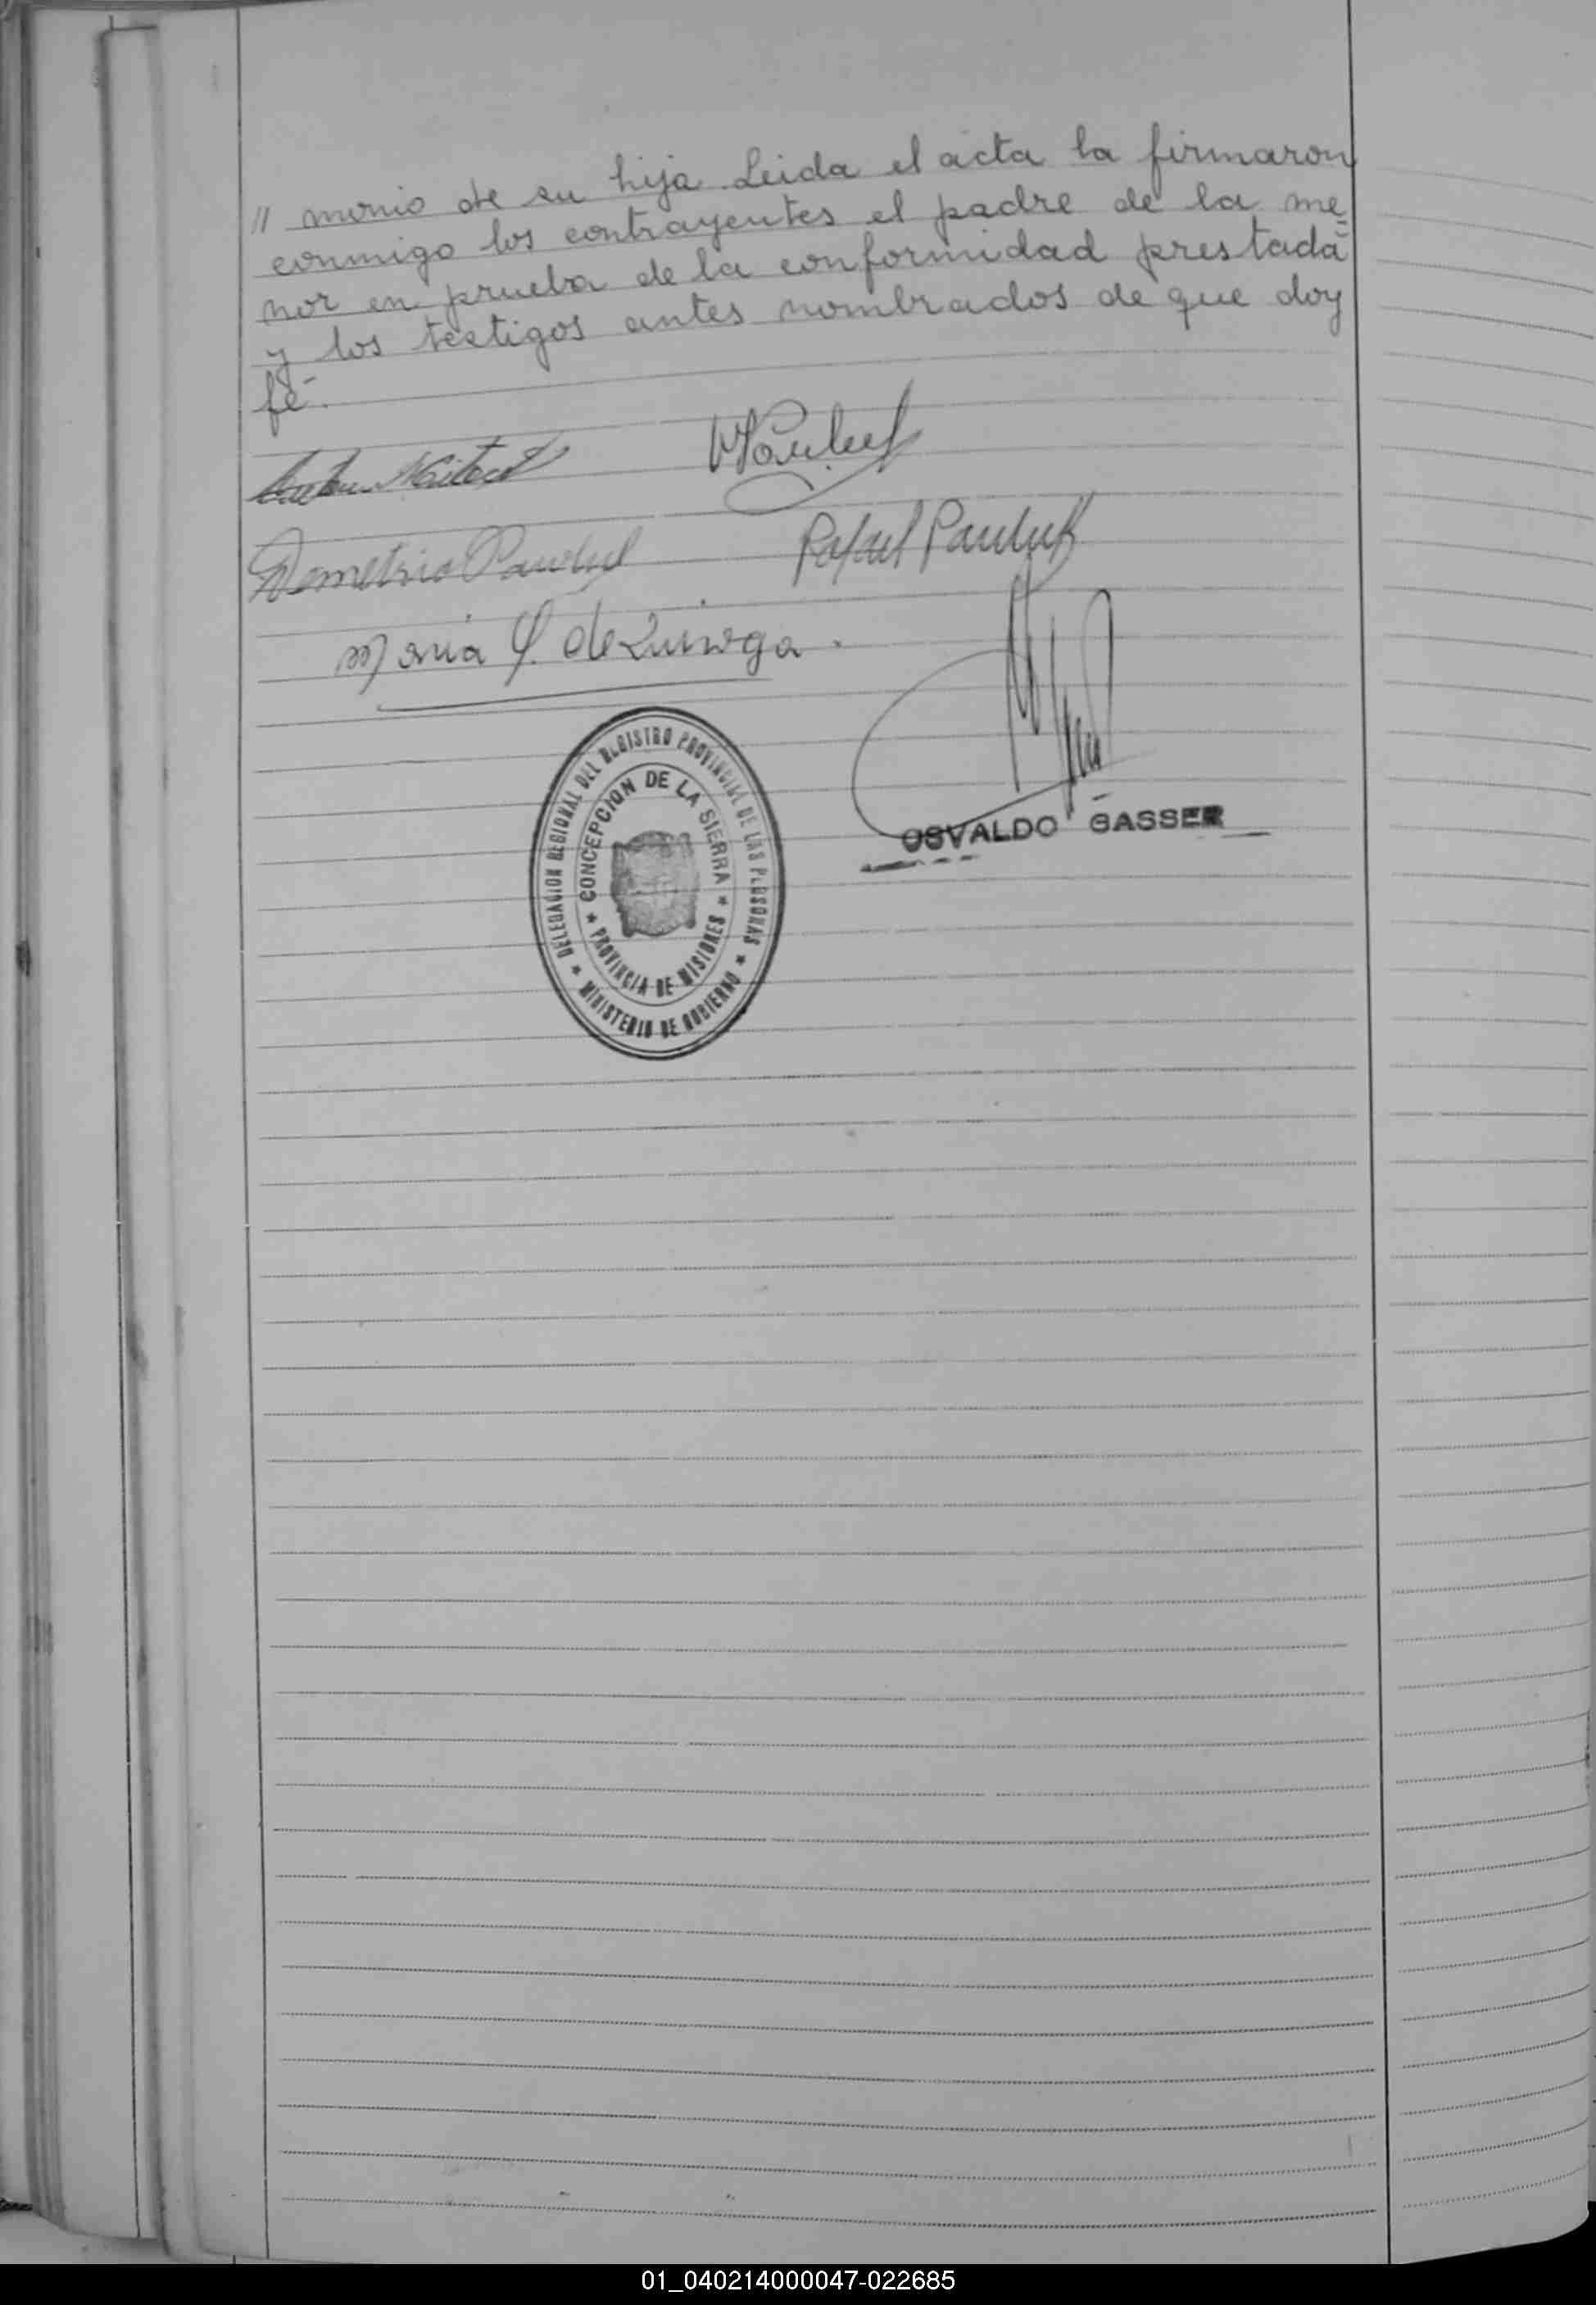 // monio de su hija. Leida el acta la firmaron
conmigo los contrayentes el padre de la me=
nor en prueba de la conformidad prestada
y los testigos antes nombrados de que doy
fé-.
Demetrio Pauluk
Rafael Pauluk
Maria Y. de Quiroga.
DELEGACION REGIONAL DEL REGISTRO PROVINCIAL DE LAS PERSONAS
★ MINISTERIO DE GOBIERNO ★
★ CONCEPCION DE LA SIERRA ★
PROVINCIA DE MISIONES
OSVALDO GASSER
01_040214000047-022685